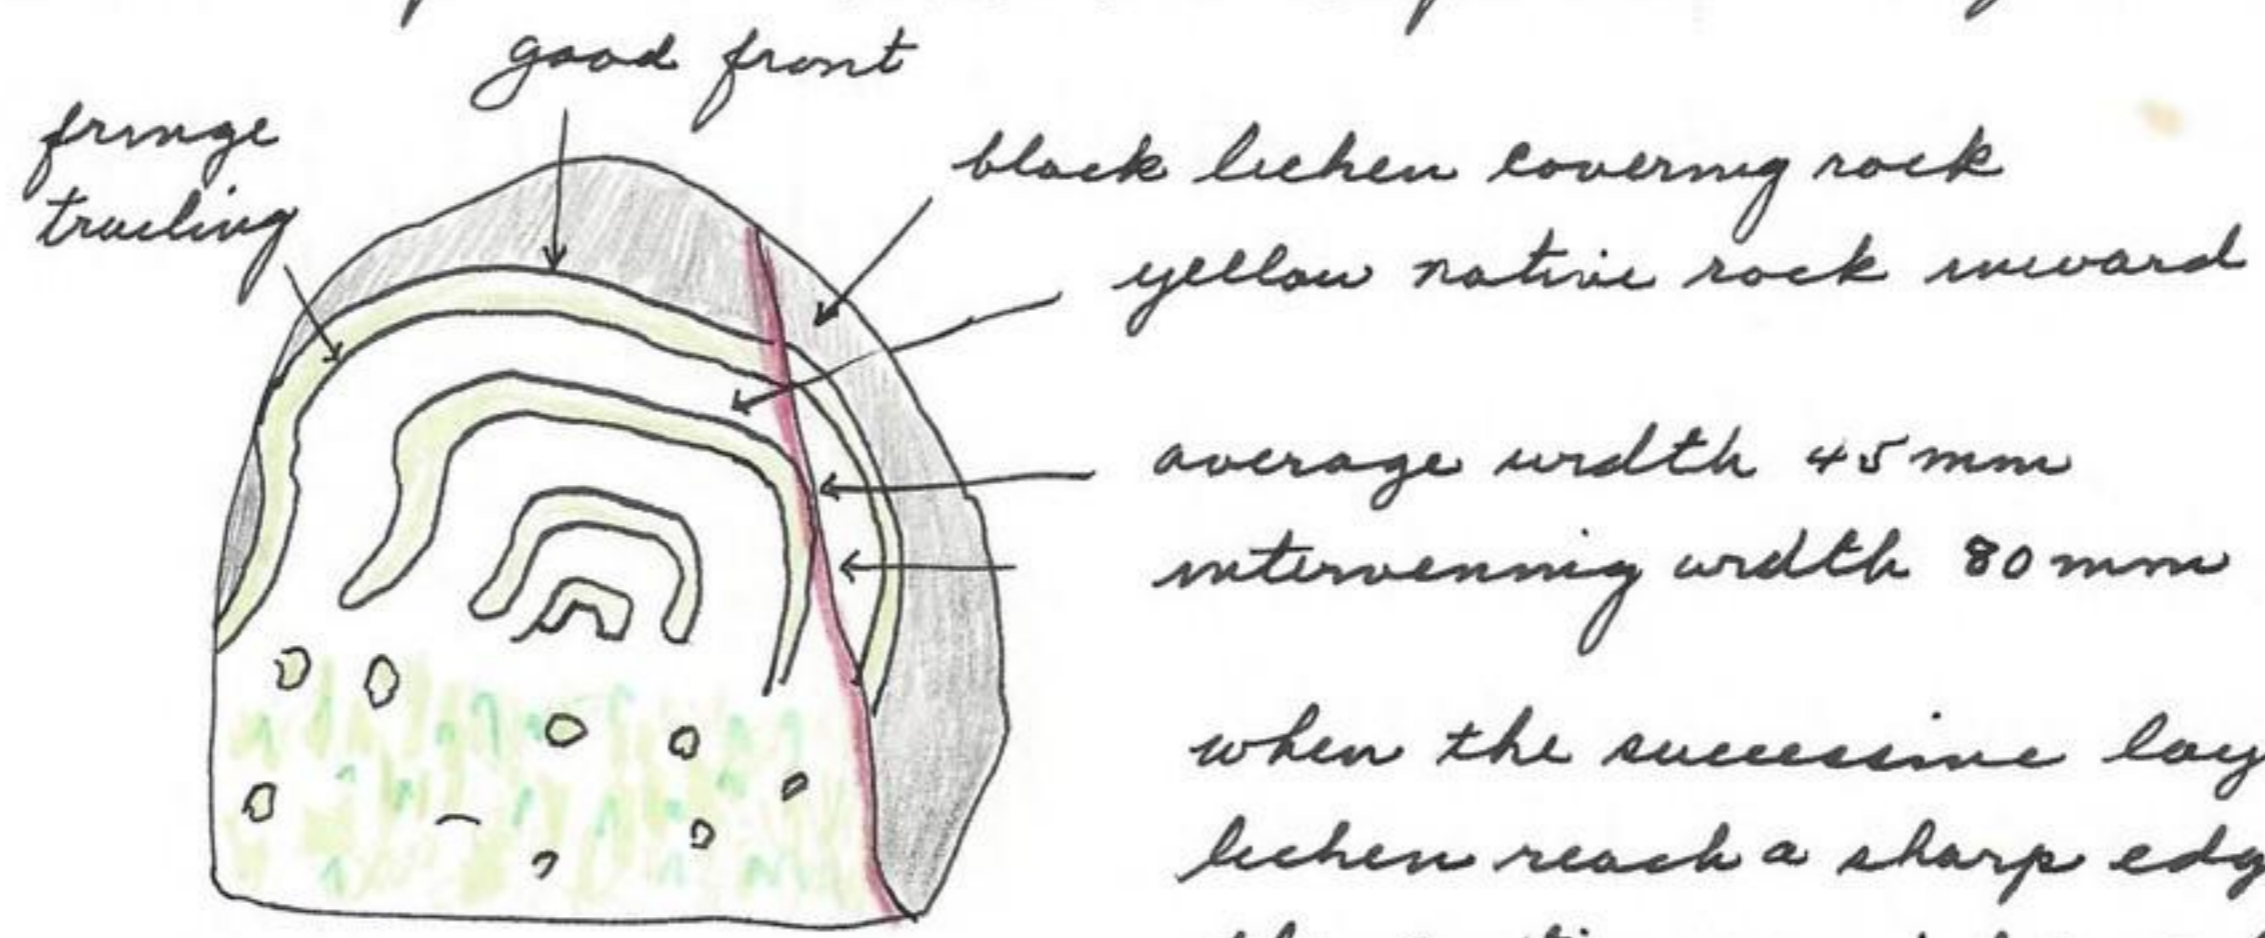 good front
fringe
trailing
black lichen covering rock
yellow native rock inward
average width 45 mm
intervening width 80 mm
when the successive lay
lichen reach a sharp edg